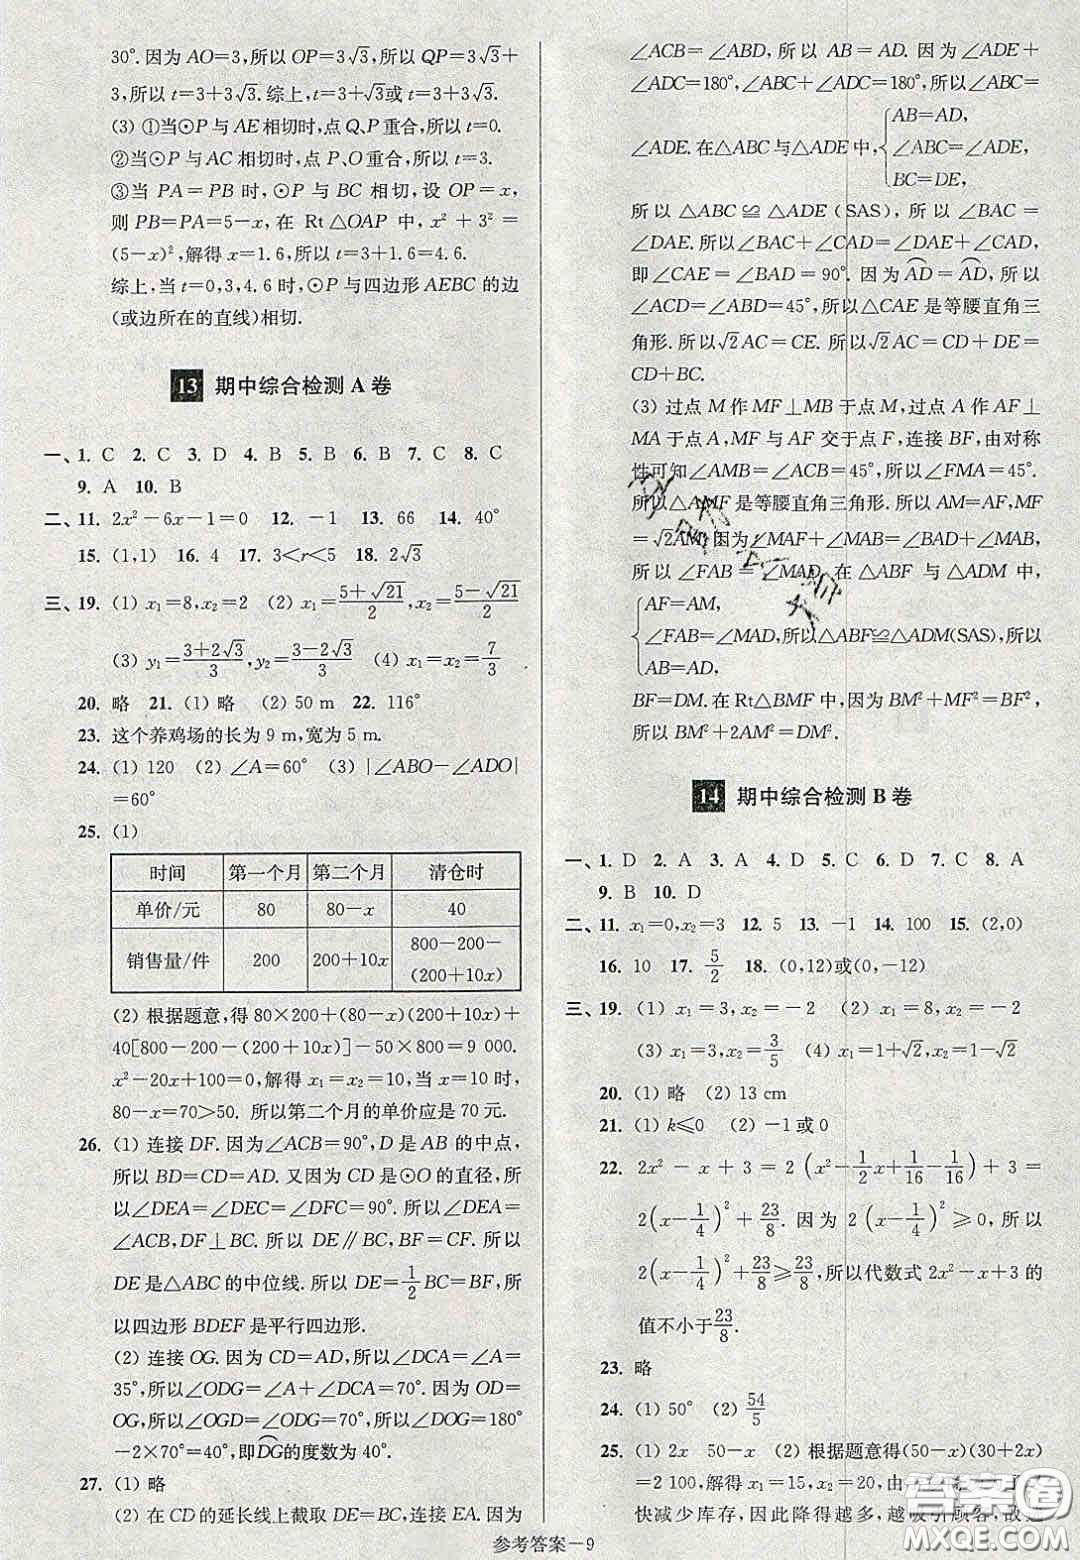 30°. 因为 AO=3,所以 OP=3√3,所以 QP=3√3+
3,所以 t=3+3√3. 综上,t=3+√3或 t=3+3√3.
(3) ①当⊙P 与 AE 相切时,点 Q、P 重合,所以 t=0.
②当⊙P 与 AC 相切时,点 P、O 重合,所以 t=3.
③当 PA=PB 时,⊙P 与 BC 相切,设 OP=x,
则 PB=PA=5-x,在 Rt△OAP 中,x²+3²=
(5-x)²,解得 x=1.6,所以 t=3+1.6=4.6.
综上,当 t=0,3,4.6 时,⊙P 与四边形 AEBC 的边
(或边所在的直线)相切.
13 期中综合检测 A 卷
一、1. C 2. C 3. D 4. B 5. B 6. B 7. C 8. C
9. A 10. B
二、11. 2x²-6x-1=0 12. -1 13. 66 14. 40°
15. (1,1) 16. 4 17. 3<r<5 18. 2√3
三、19. (1) x₁=8,x₂=2 (2) x₁=(5+√21)/2,x₂=(5-√21)/2
(3) y₁=(3+2√3)/3,y₂=(3-2√3)/3 (4) x₁=x₂=7/3
20. 略 21. (1) 略 (2) 50 m 22. 116°
23. 这个养鸡场的长为 9 m,宽为 5 m.
24. (1) 120 (2) ∠A=60° (3) |∠ABO-∠ADO|
=60°
25. (1)
时间 第一个月 第二个月 清仓时
单价/元 80 80-x 40
销售量/件 200 200+10x 800-200-(200+10x)
(2) 根据题意,得 80×200+(80-x)(200+10x)+
40[800-200-(200+10x)]-50×800=9 000.
x²-20x+100=0,解得 x₁=x₂=10,当 x=10 时,
80-x=70>50. 所以第二个月的单价应是 70 元.
26. (1) 连接 DF. 因为∠ACB=90°,D 是 AB 的中点,
所以 BD=CD=AD. 又因为 CD 是⊙O 的直径,所
以∠DEA=∠DEC=∠DFC=90°. 所以∠DEA=
∠ACB,DF⊥BC. 所以 DE∥BC,BF=CF. 所以
DE 是△ABC 的中位线. 所以 DE=1/2BC=BF,所
以四边形 BDEF 是平行四边形.
(2) 连接 OG. 因为 CD=AD,所以∠DCA=∠A=
35°,所以∠ODG=∠A+∠DCA=70°. 因为 OD=
OG,所以∠OGD=∠ODG=70°,所以∠DOG=180°
-2×70°=40°,即DG的度数为 40°.
27. (1) 略
(2) 在 CD 的延长线上截取 DE=BC,连接 EA. 因为
∠ACB=∠ABD,所以 AB=AD. 因为∠ADE+
∠ADC=180°,∠ABC+∠ADC=180°,所以∠ABC=
∠ADE. 在△ABC 与△ADE 中,{AB=AD,
∠ABC=∠ADE,
BC=DE,
所以△ABC≌△ADE(SAS),所以∠BAC=
∠DAE. 所以∠BAC+∠CAD=∠DAE+∠CAD,
即∠CAE=∠BAD=90°. 因为AD=AD,所以
∠ACD=∠ABD=45°,所以△CAE 是等腰直角三
角形. 所以√2AC=CE. 所以√2AC=CD+DE=
CD+BC.
(3) 过点 M 作 MF⊥MB 于点 M,过点 A 作 AF⊥
MA 于点 A,MF 与 AF 交于点 F,连接 BF,由对称
性可知∠AMB=∠ACB=45°,所以∠FMA=45°.
所以△AMF 是等腰直角三角形. 所以 AM=AF,MF
=√2AM. 因为∠MAF+∠MAB=∠BAD+∠MAB,
所以∠FAB=∠MAD. 在△ABF 与△ADM 中,
{AF=AM,
∠FAB=∠MAD,所以△ABF≌△ADM(SAS),所以
AB=AD,
BF=DM. 在 Rt△BMF 中,因为 BM²+MF²=BF²,
所以 BM²+2AM²=DM².
14 期中综合检测 B 卷
一、1. D 2. A 3. A 4. D 5. C 6. D 7. C 8. A
9. B 10. D
二、11. x₁=0,x₂=3 12. 5 13. -1 14. 100 15. (2,0)
16. 10 17. 5/2 18. (0,12)或(0,-12)
三、19. (1) x₁=3,x₂=-2 (2) x₁=8,x₂=-2
(3) x₁=3,x₂=3/5 (4) x₁=1+√2,x₂=1-√2
20. (1) 略 (2) 13 cm
21. (1) k≤0 (2) -1或 0
22. 2x²-x+3=2(x²-1/2x+1/16-1/16)+3=
2(x-1/4)²+23/8. 因为 2(x-1/4)²≥0,所以
2(x-1/4)²+23/8≥23/8,所以代数式 2x²-x+3 的
值不小于23/8.
23. 略
24. (1) 50° (2) 54/5
25. (1) 2x 50-x (2) 根据题意得(50-x)(30+2x)
=2 100,解得 x₁=15,x₂=20,因为
快减少库存,因此降得越多,越吸引顾客,故选
参考答案—9
答案圈
MXQE.COM